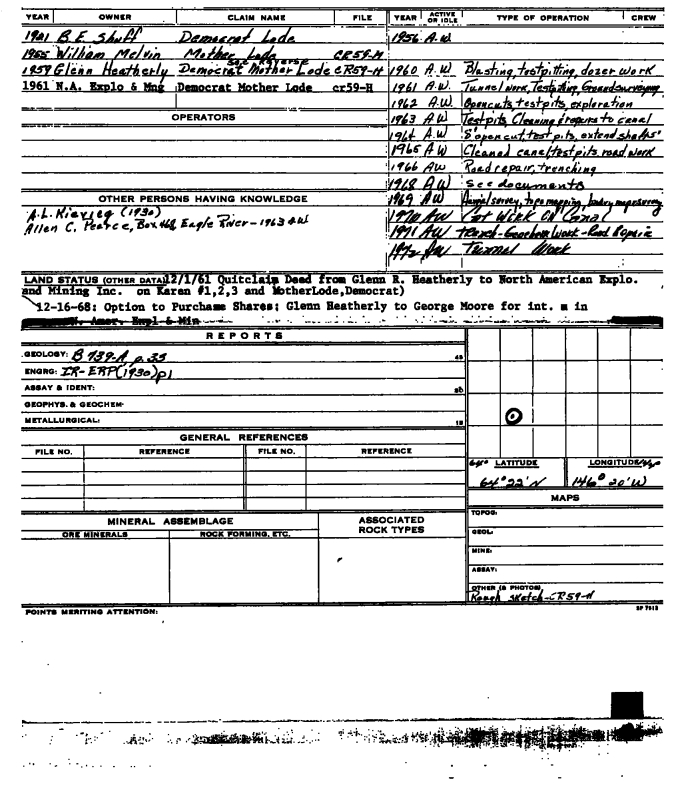 YEAR OWNER CLAIM NAME FILE YEAR ACTIVE OR IDLE TYPE OF OPERATION CREW
1921 B.E. Shuff Democrat Lode 1956 A.W.
1955 William Melvin Mother Lode CR59-H
see reverse
1959 Glenn Heatherly Democrat Mother Lode CR59-H 1960 A.W. Blasting, testpitting, dozer work
1961 N.A. Explo & Mng Democrat Mother Lode cr59-H 1961 A.W. Tunnel work, Testpitting, Groundsurveying
1962 A.W. Opencuts, testpits, exploration
OPERATORS 1963 AW Testpits, Cleaning & repairs to canal
1964 A.W. 5' open cut, test pits, extend shafts
1965 A.W. Cleaned canal, testpits, road work
1966 AW Road repair, trenching
1968 AW See documents
OTHER PERSONS HAVING KNOWLEDGE 1969 AW Aerial survey, topo mapping,
A.L. (1930) 1970 AW Work on Canal
Allen C. Pearce, Box 468, Eagle River - 1963 AW 1971 AW Trench - Geochem Work - Road Repair
1972 AW Tunnel Work
LAND STATUS (OTHER DATA) 12/1/61 Quitclaim Deed from Glenn R. Heatherly to North American Explo.
and Mining Inc. on Karen #1,2,3 and MotherLode,Democrat)
12-16-68: Option to Purchase Shares; Glenn Heatherly to George Moore for int. in
N. Amer. Expl & Min
REPORTS
GEOLOGY: B 739-A p. 35
ENGRG: IR-ERP(1930)p1
ASSAY & IDENT:
GEOPHYS. & GEOCHEM-
METALLURGICAL:
GENERAL REFERENCES
FILE NO. REFERENCE FILE NO. REFERENCE
64° LATITUDE LONGITUDE
64°22'N 146°20'W
MAPS
MINERAL ASSEMBLAGE ASSOCIATED ROCK TYPES TOPOG:
ORE MINERALS ROCK FORMING, ETC. GEOL:
MINE:
ASSAY:
OTHER (& PHOTOS)
Rough Sketch-CR59-H
POINTS MERITING ATTENTION: SP 7512